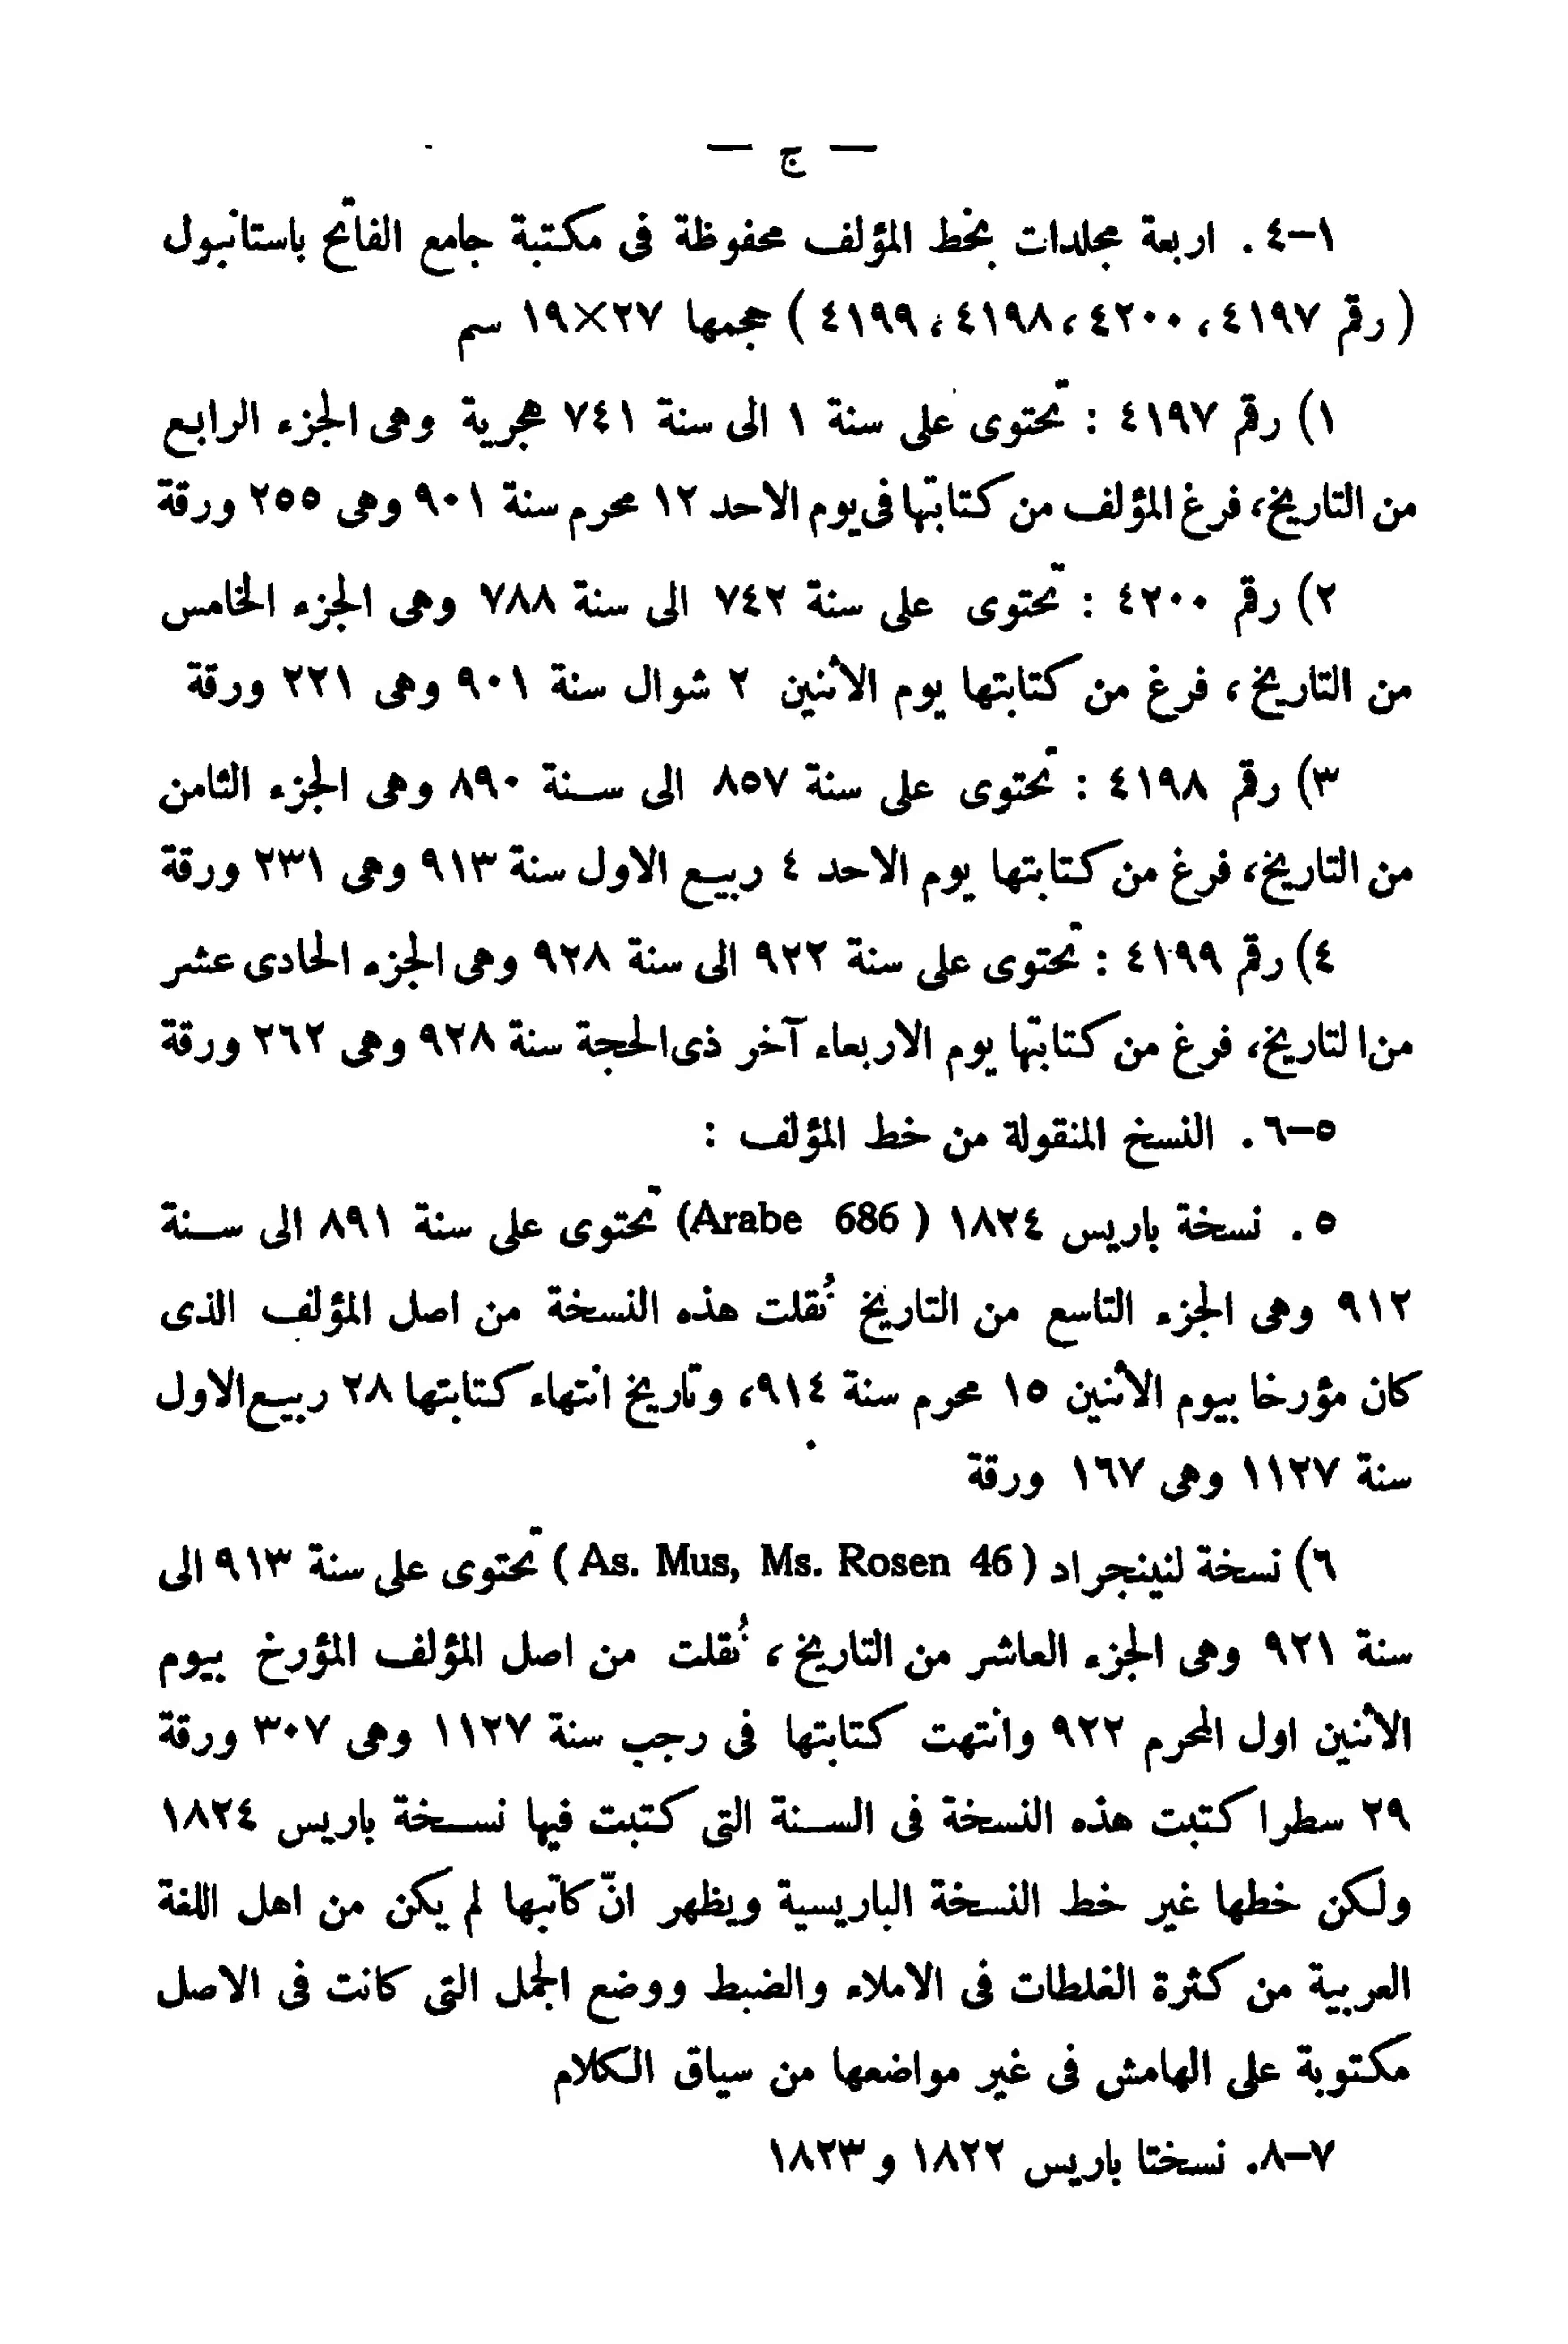 — ج —
١-٤ . اربعة مجلدات بخط المؤلف محفوظة فى مكتبة جامع الفاتح باستانبول
( رقم ٤١٩٧، ٤٢٠٠، ٤١٩٨، ٤١٩٩ ) حجمها ٢٧×١٩ سم
١) رقم ٤١٩٧ : تحتوى على سنة ١ الى سنة ٧٤١ هجرية وهى الجزء الرابع
من التاريخ، فرغ المؤلف من كتابتها فى يوم الاحد ١٢ محرم سنة ٩٠١ وهى ٢٥٥ ورقة
٢) رقم ٤٢٠٠ : تحتوى على سنة ٧٤٢ الى سنة ٧٨٨ وهى الجزء الخامس
من التاريخ ، فرغ من كتابتها يوم الأثنين ٢ شوال سنة ٩٠١ وهى ٢٢١ ورقة
٣) رقم ٤١٩٨ : تحتوى على سنة ٨٥٧ الى سنة ٨٩٠ وهى الجزء الثامن
من التاريخ، فرغ من كتابتها يوم الاحد ٤ ربيع الاول سنة ٩١٣ وهى ٢٣١ ورقة
٤) رقم ٤١٩٩ : تحتوى على سنة ٩٢٢ الى سنة ٩٢٨ وهى الجزء الحادى عشر
من التاريخ، فرغ من كتابتها يوم الاربعاء آخر ذى الحجة سنة ٩٢٨ وهى ٢٦٢ ورقة
٥-٦ . النسخ المنقولة من خط المؤلف :
٥ . نسخة باريس ١٨٢٤ ( Arabe 686) تحتوى على سنة ٨٩١ الى سنة
٩١٢ وهى الجزء التاسع من التاريخ نُقلت هذه النسخة من اصل المؤلف الذى
كان مؤرخا بيوم الأثنين ١٥ محرم سنة ٩١٤، وتاريخ انتهاء كتابتها ٢٨ ربيع الاول
سنة ١١٢٧ وهى ١٦٧ ورقة
٦) نسخة لنينجراد ( As. Mus, Ms. Rosen 46 ) تحتوى على سنة ٩١٣ الى
سنة ٩٢١ وهى الجزء العاشر من التاريخ ، نُقلت من اصل المؤلف المؤرخ بيوم
الأثنين اول المحرم ٩٢٢ وانتهت كتابتها فى رجب سنة ١١٢٧ وهى ٣٠٧ ورقة
٢٩ سطرا كتبت هذه النسخة فى السنة التى كتبت فيها نسخة باريس ١٨٢٤
ولكن خطها غير خط النسخة الباريسية ويظهر انّ كاتبها لم يكن من اهل اللغة
العربية من كثرة الغلطات فى الاملاء والضبط ووضع الجمل التى كانت فى الاصل
مكتوبة على الهامش فى غير مواضعها من سياق الكلام
٧-٨. نسختا باريس ١٨٢٢ و ١٨٢٣